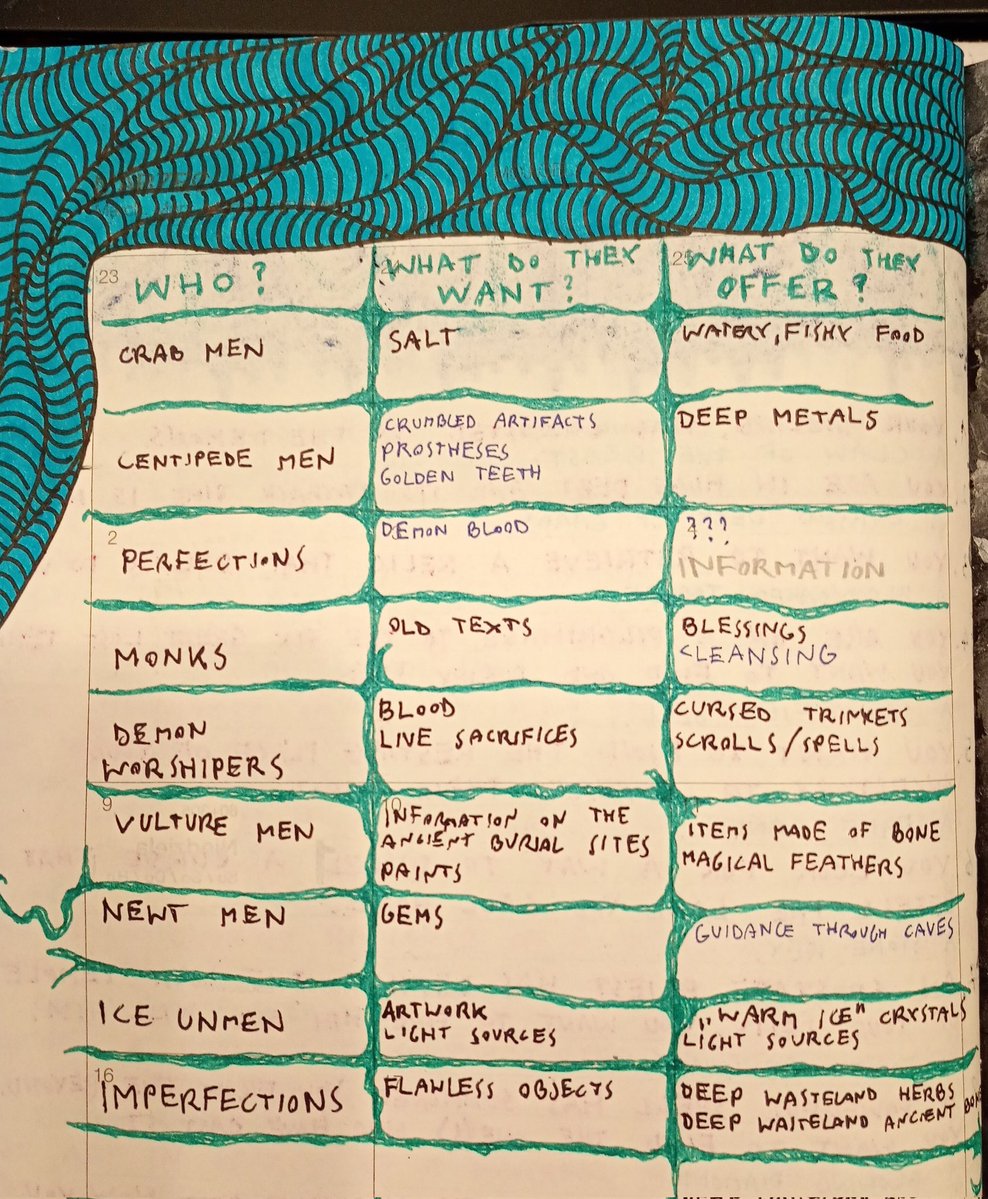 23
WHO?
WHAT DO THEY
WANT?
WHAT DO THEY
OFFER?
CRAB MEN
SALT
WATERY, FISHY FOOD
CENTIPEDE MEN
CRUMBLED ARTIFACTS
PROSTHESES
GOLDEN TEETH
DEEP METALS
2
PERFECTIONS
DEMON BLOOD
???
INFORMATION
MONKS
OLD TEXTS
BLESSINGS
CLEANSING
DEMON
WORSHIPERS
BLOOD
LIVE SACRIFICES
CURSED TRINKETS
SCROLLS/SPELLS
9
VULTURE MEN
10
INFORMATION ON THE
ANCIENT BURIAL SITES
PAINTS
ITEMS MADE OF BONE
MAGICAL FEATHERS
NEWT MEN
GEMS
GUIDANCE THROUGH CAVES
ICE UNMEN
ARTWORK
LIGHT SOURCES
„WARM ICE" CRYSTALS
LIGHT SOURCES
16
IMPERFECTIONS
FLAWLESS OBJECTS
DEEP WASTELAND HERBS
DEEP WASTELAND ANCIENT